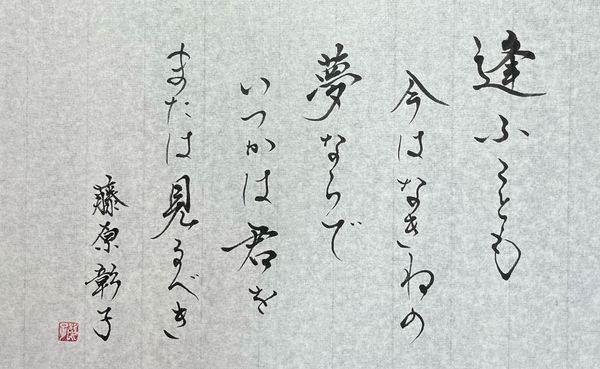 逢ふことも
今はなきねの
夢ならで
いつかは君を
または見るべき
藤原彰子